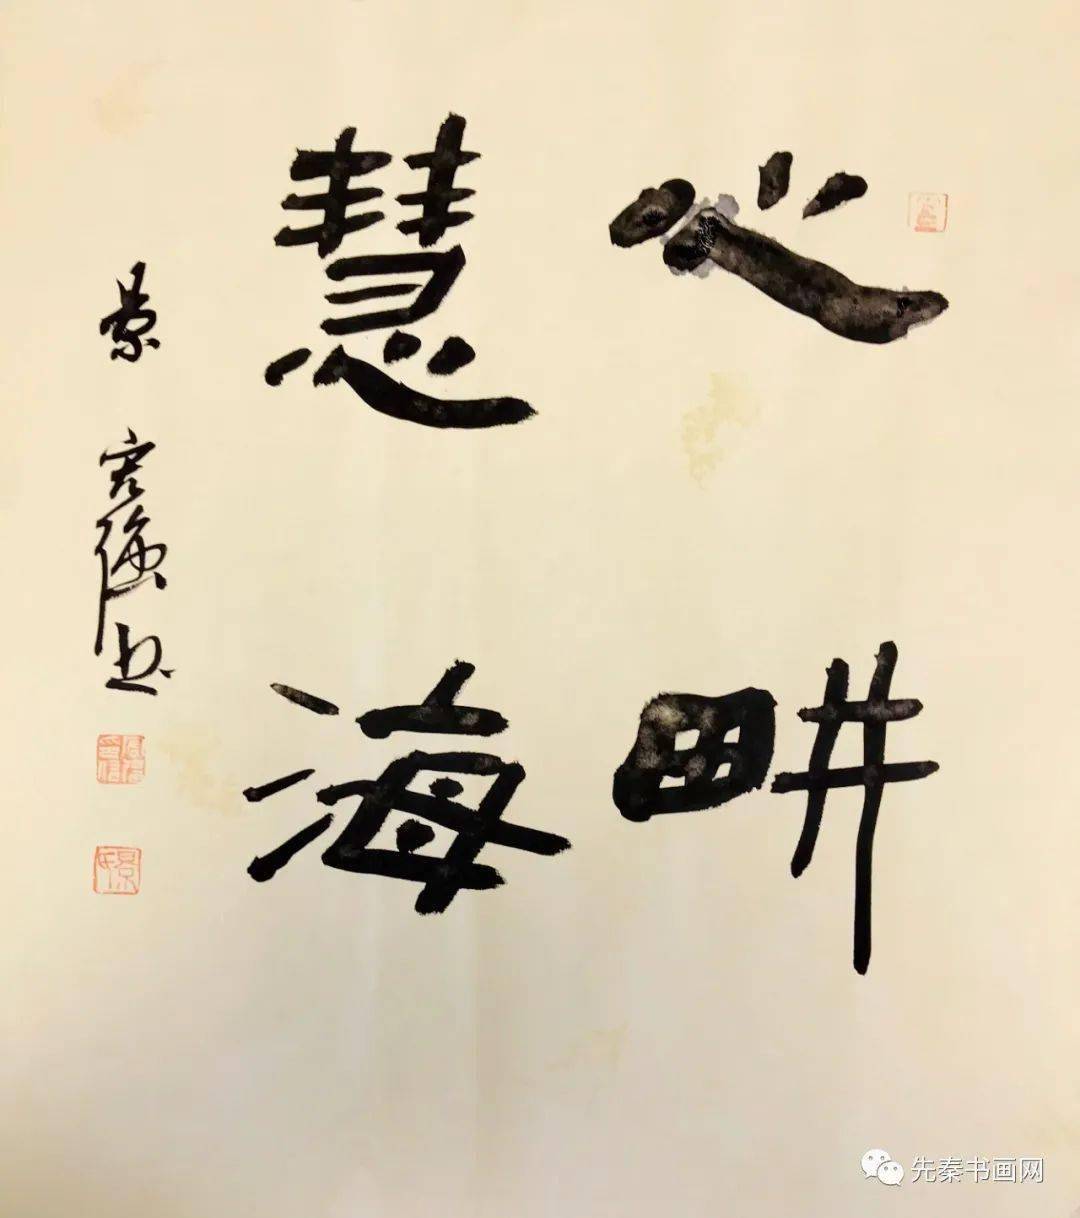 心畊
慧海
景 宏強书
先秦书画网